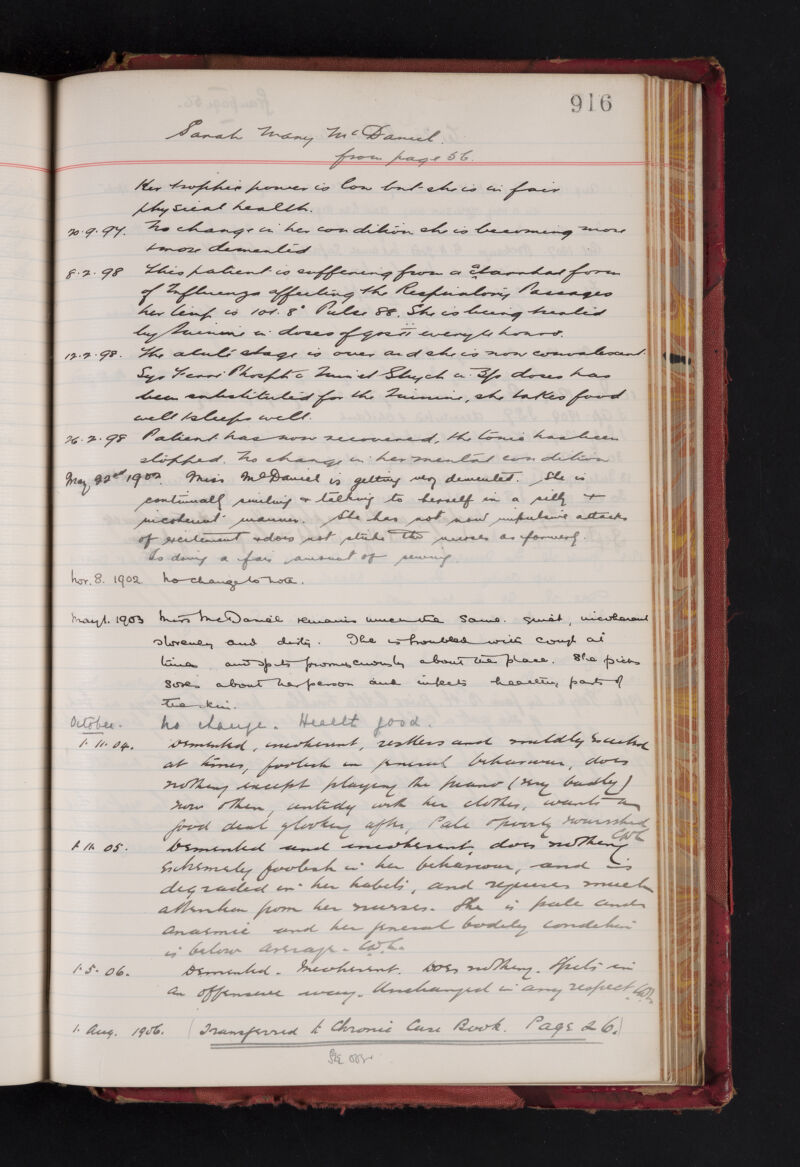 916
Sarah Mary McDaniel.
from page 56.
Her trophic power is low but she is in fair
physical health.
20.9.97. No change in her condition she is becoming more
& more demented
8.2.98 This patient is suffering from a Catarrhal form
of Influenza affecting the Respiratory Passages
her temp is 101.8° Pulse 88. She is being treated
by Quinine in doses of grs ii every 4 hours.
12.2.98. The acute stage is over and she is now convalescent.
Syr Ferri Phosph c Quin et Strych in ʒi doses has
been substituted for the Quinine, she takes food
well & sleeps well.
26.2.98 Patient has now recovered, the tonic has been
stopped. No change in her mental condition
May 22nd 1902. Miss McDaniel is getting very demented. She is
continually smiling & talking to herself in a silly &
incoherent manner. She has not now impulsive attacks
of excitement & does not strike the nurses as formerly.
Is doing a fair amount of sewing.
Nov. 8. 1902 No change to note.
May 1. 1903 Miss McDaniel remains much the same. Quiet, incoherent
slovenly and dirty. She is troubled with cough at
times and spits promiscuously about the place. She picks
sores about her person and infects healthy parts of
the skin.
October. No change. Health good.
1.11.04. Demented, incoherent, restless and mildly excited
at times, foolish in general behaviour, does
nothing except playing the piano (very badly)
now & then, untidy with her clothes, wants a
good deal of looking after, Pale & poorly nourished
1.11.05. Demented and incoherent, does nothing
Extremely foolish in her behaviour, and is
degraded in her habits, and requires much
attention from her nurses. She is pale and
anaemic and her general bodily condition
is below average.
1.5.06. Demented. Incoherent. Does nothing. Spits in
an offensive way. Unchanged in any respect.
1. Aug. 1906. (Transferred to Chronic Case Book. Page 26.)
See over